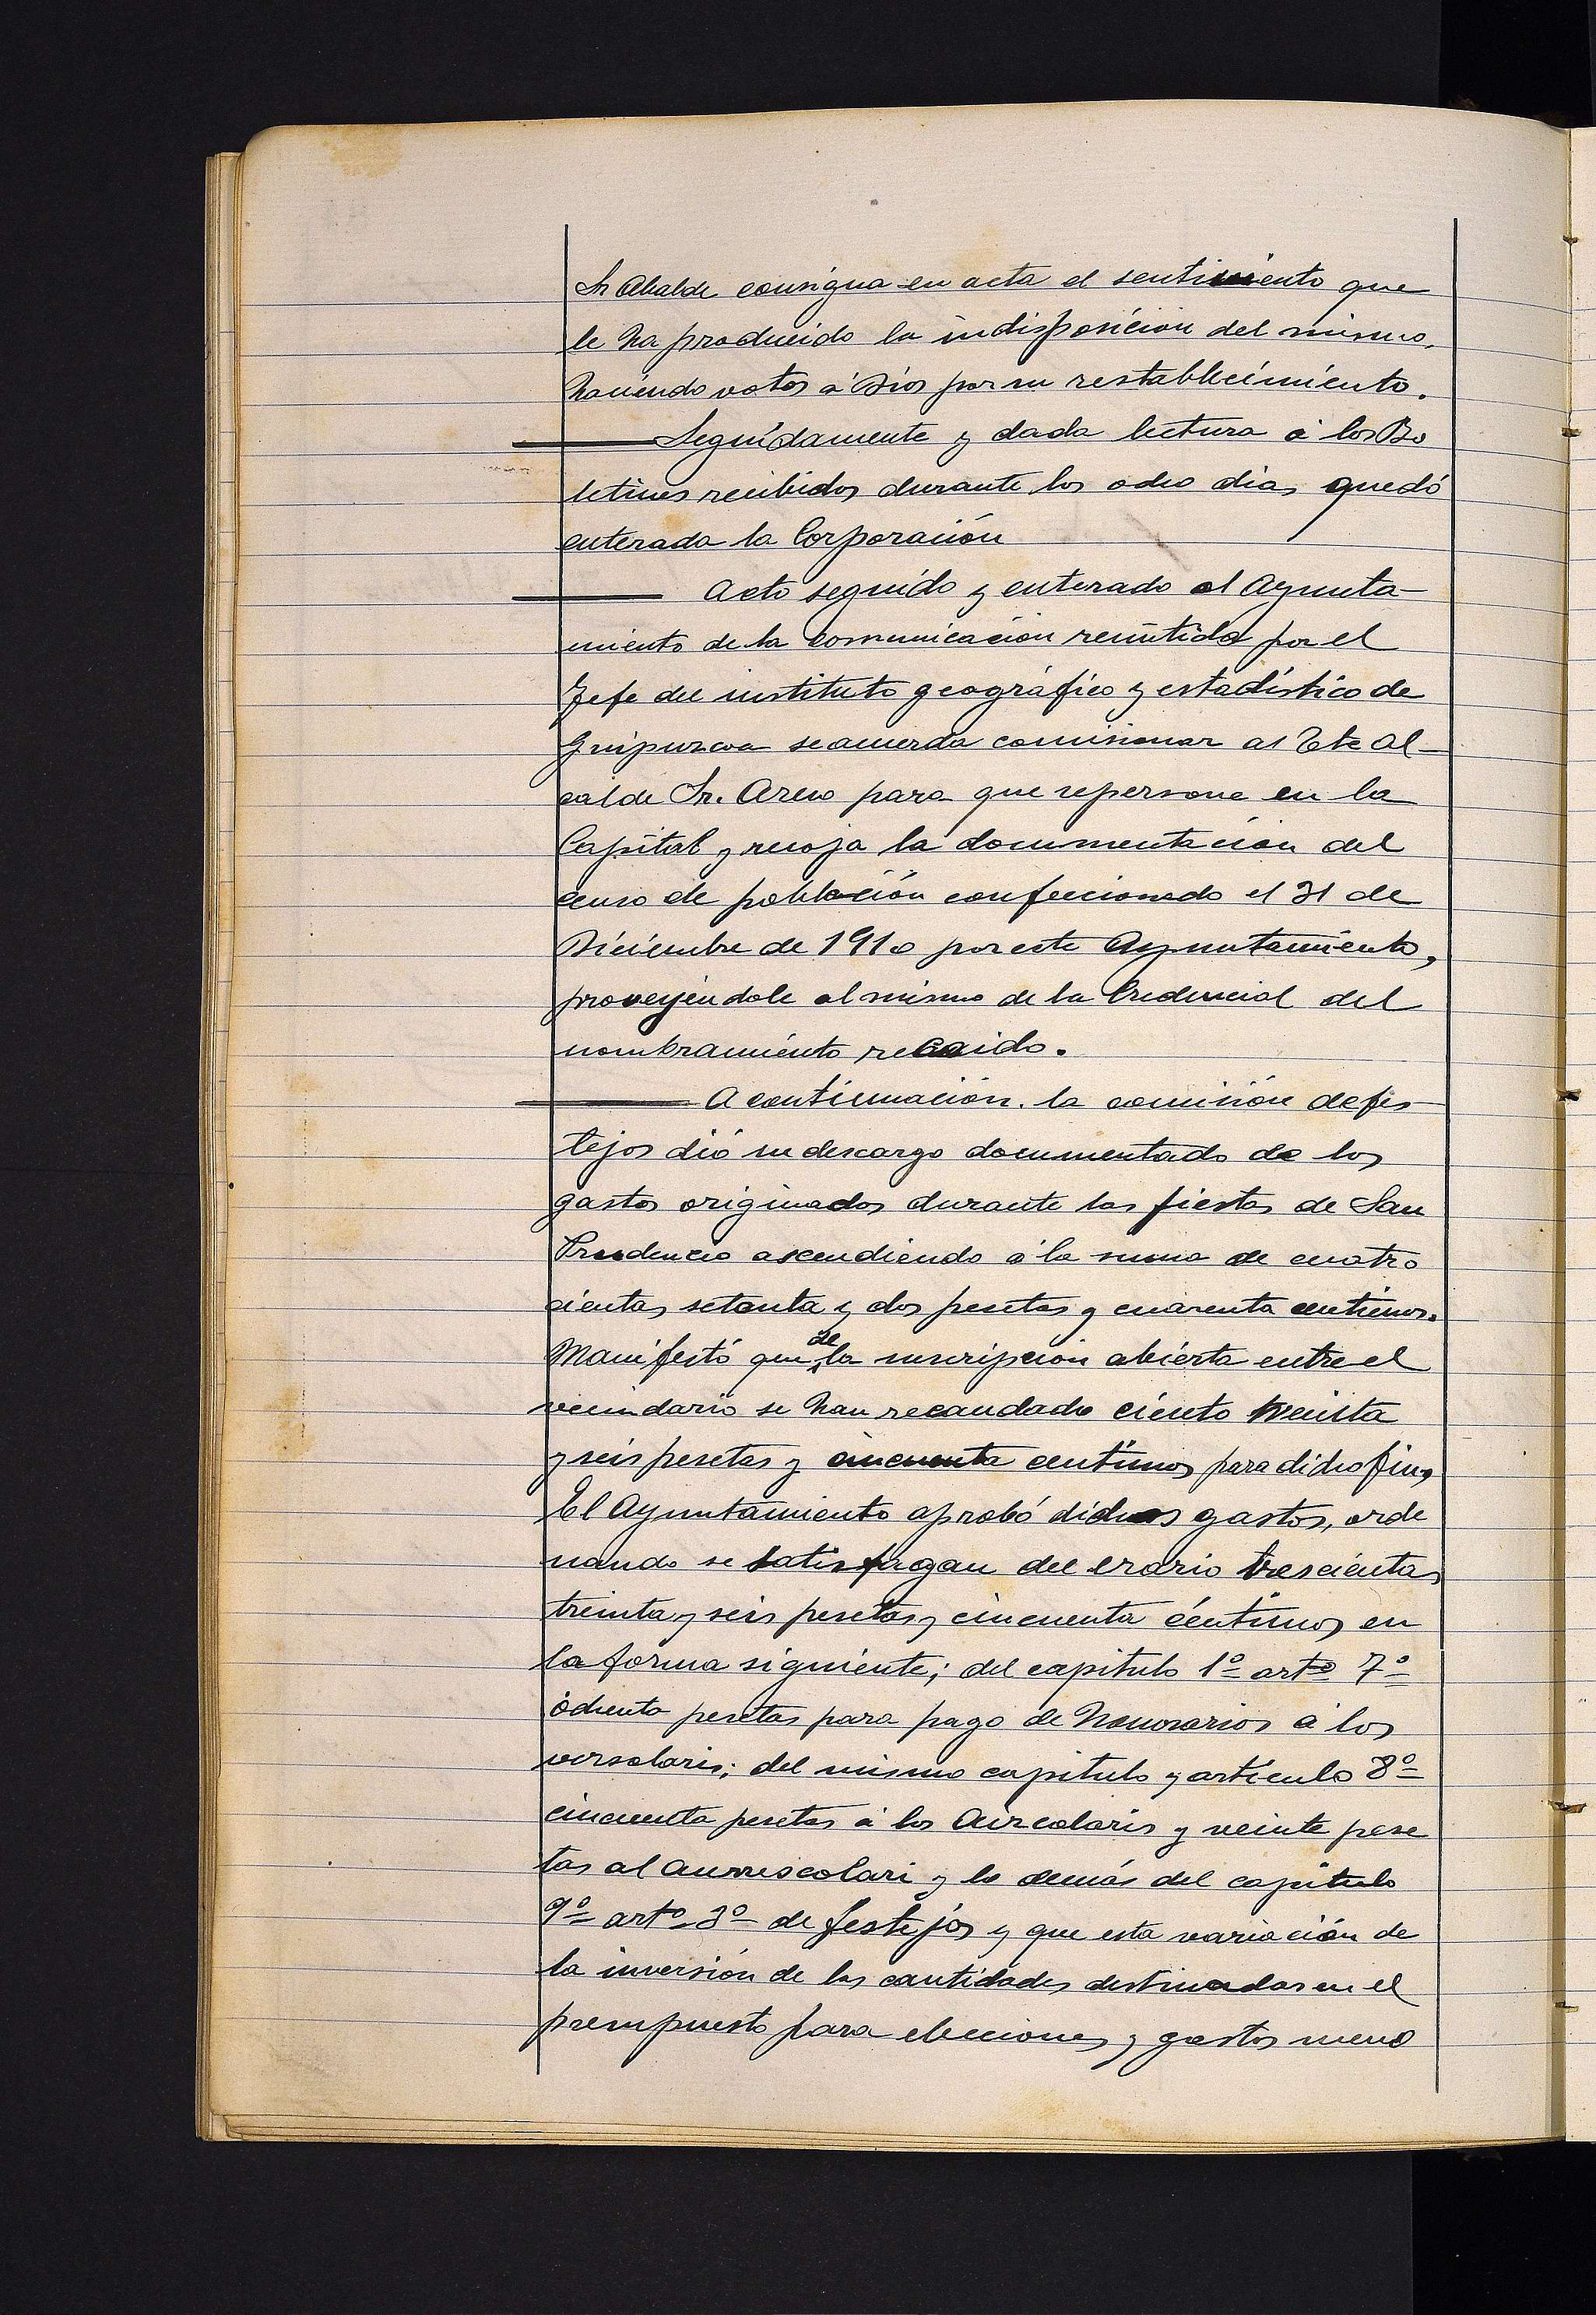 Sr Alcalde consigna en acta el sentimiento que
le ha producido la indisposición del mismo,
haciendo votos á Dios por su restablecimiento.
Seguidamente y dada lectura á los Bo
letines recibidos durante los ocho dias quedó
enterada la Corporación
Acto seguido y enterado el Ayunta-
miento de la comunicación remitida por el
Jefe del instituto geográfico y estadístico de
Guipuzcoa se acuerda comisionar al Tte Al-
calde Sr. para que se persone en la
Capital y recoja la documentación del
censo de población confeccionado el 31 de
Diciembre de 1910 por este Ayuntamiento,
proveyéndole al mismo de la Credencial del
nombramiento recaido.
A continuación. la comisión de fes-
tejos dió su descargo documentado de los
gastos originados durante las fiestas de San
Prudencio ascendiendo á la suma de cuatro
cientas setenta y dos pesetas y cuarenta centimos.
Manifestó que de la suscripcion abierta entre el
vecindario se han recaudado ciento treinta
y seis pesetas y cincuenta centimos para dicho fin,
El Ayuntamiento aprobó dichos gastos, orde
nando se satisfagan del erario trescientas
treinta y seis pesetas y cincuenta céntimos en
la forma siguiente; del capitulo 1º artº 7º
ochenta pesetas para pago de honorarios á los
versolaris; del mismo capitulo y artículo 8º
cincuenta pesetas á los Aizcolaris y veinte pese
tas al aurrescolari y lo demás del capitulo
9º artº 3º de festejos y que esta variación de
la inversión de las cantidades destinadas en el
presupuesto para elecciones y gastos meno